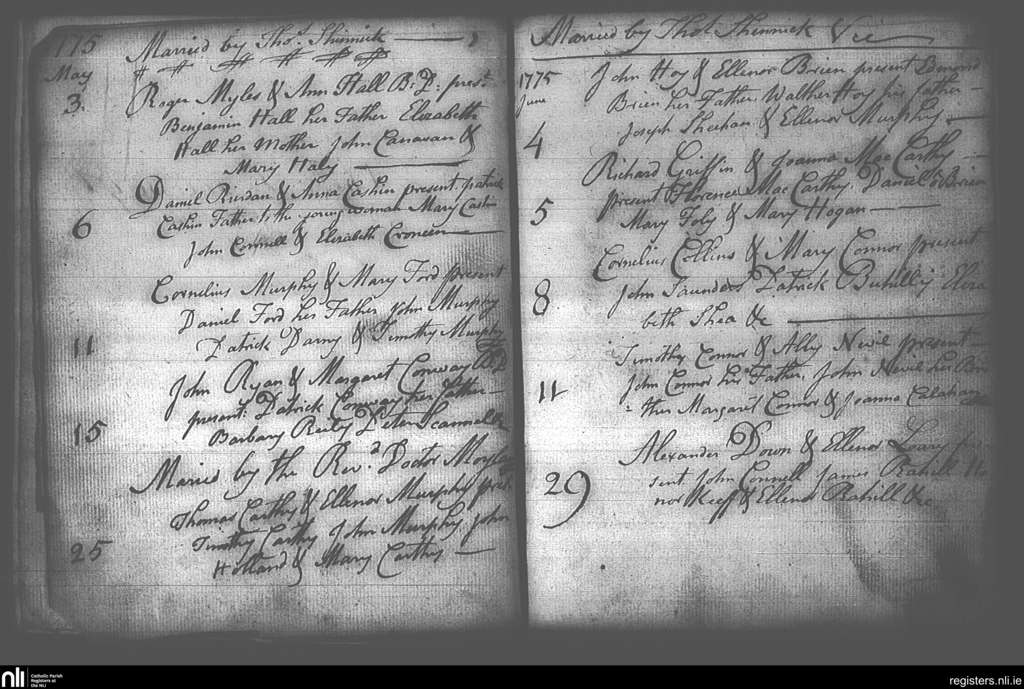 1775 Married by Thos. Shinnick
May
3. Roger Myles & Ann Hall B. D: prest.
Benjamin Hall her Father Elizabeth
Hall her Mother John Canavan &
Mary Haly
Daniel Rierdan & Anna Cashin present patrick
6 Cashin Father to the young woman Mary Cashin
John Connell & Elizabeth Croneen
Cornelius Murphy & Mary Ford present
Daniel Ford her Father John Murphy
11 Patrick Darny & Timothy Murphy
John Ryan & Margaret Conway
present: Patrick Conway her father
15 Barbary Reily Peter Scannell &c
Maried by the Revd. Doctor
Thomas Carthy & Ellenor Murphy prest.
Timothy Carthy John Murphy, John
25 Holland & Mary Carthy
Married by Thos. Shinnick Vic
1775 John Hoy & Ellenor Brien present Edmond
June Brien her Father, Walther Hoy his father
4 Joseph Sheehan & Ellenor Murphy
Richard Griffin & Joanna Mac Carthy
present Florence Mac Carthy, Daniel o Brien
5 Mary Foly & Mary Hogan
Cornelius Collins & Mary Connor present
8 John Saunders Patrick Buhilly Eliza
beth Shea &c
Timothy Connor & Ally Nevil present
11 John Connor his Father, John Nevil her Bro
=ther Margaret Connor & Joanna Calahan
Alexander Down & Ellenor Lowry pre
29 sent John Connell James Rahill
nor Keeff & Ellenor Rahill &c
nli Catholic Parish
Registers at
the NLI
registers.nli.ie